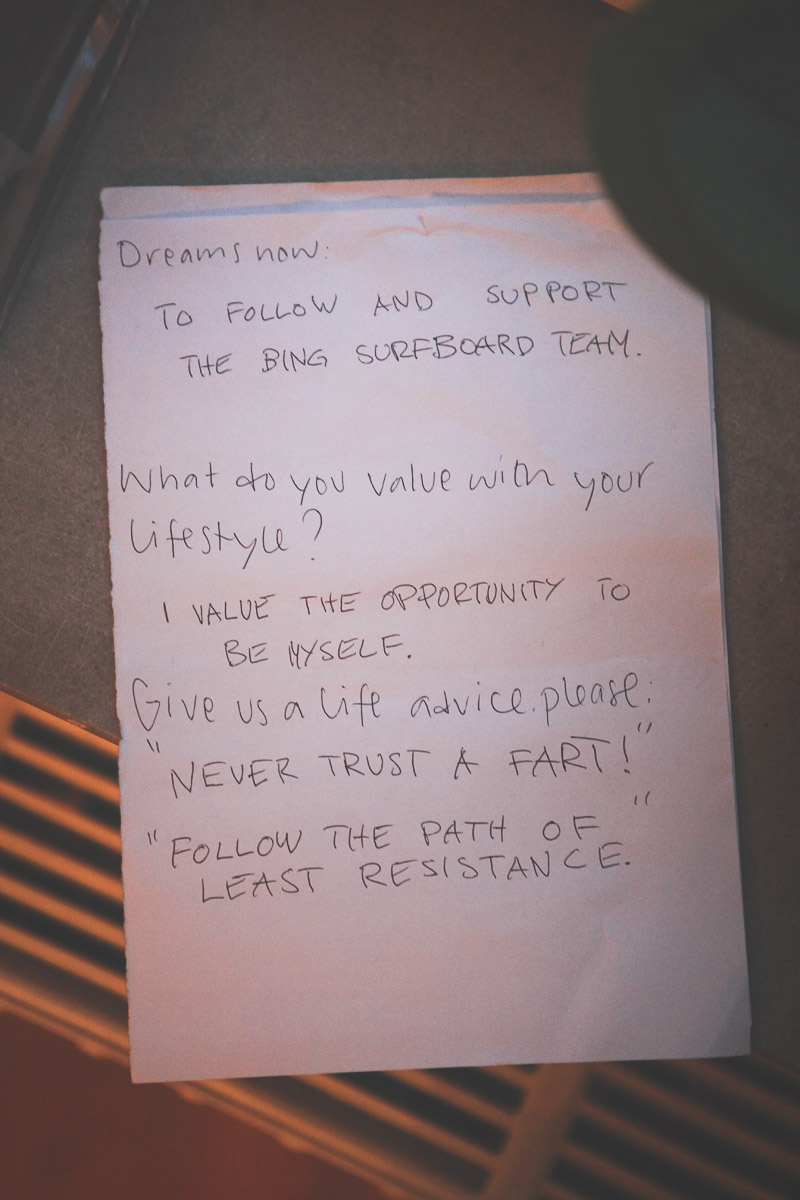 Dreams now:
TO FOLLOW AND SUPPORT
THE BING SURFBOARD TEAM.
What do you value with your
lifestyle?
I VALUE THE OPPORTUNITY TO
BE MYSELF.
Give us a life advice.please:
"NEVER TRUST A FART!"
"FOLLOW THE PATH OF
LEAST RESISTANCE."